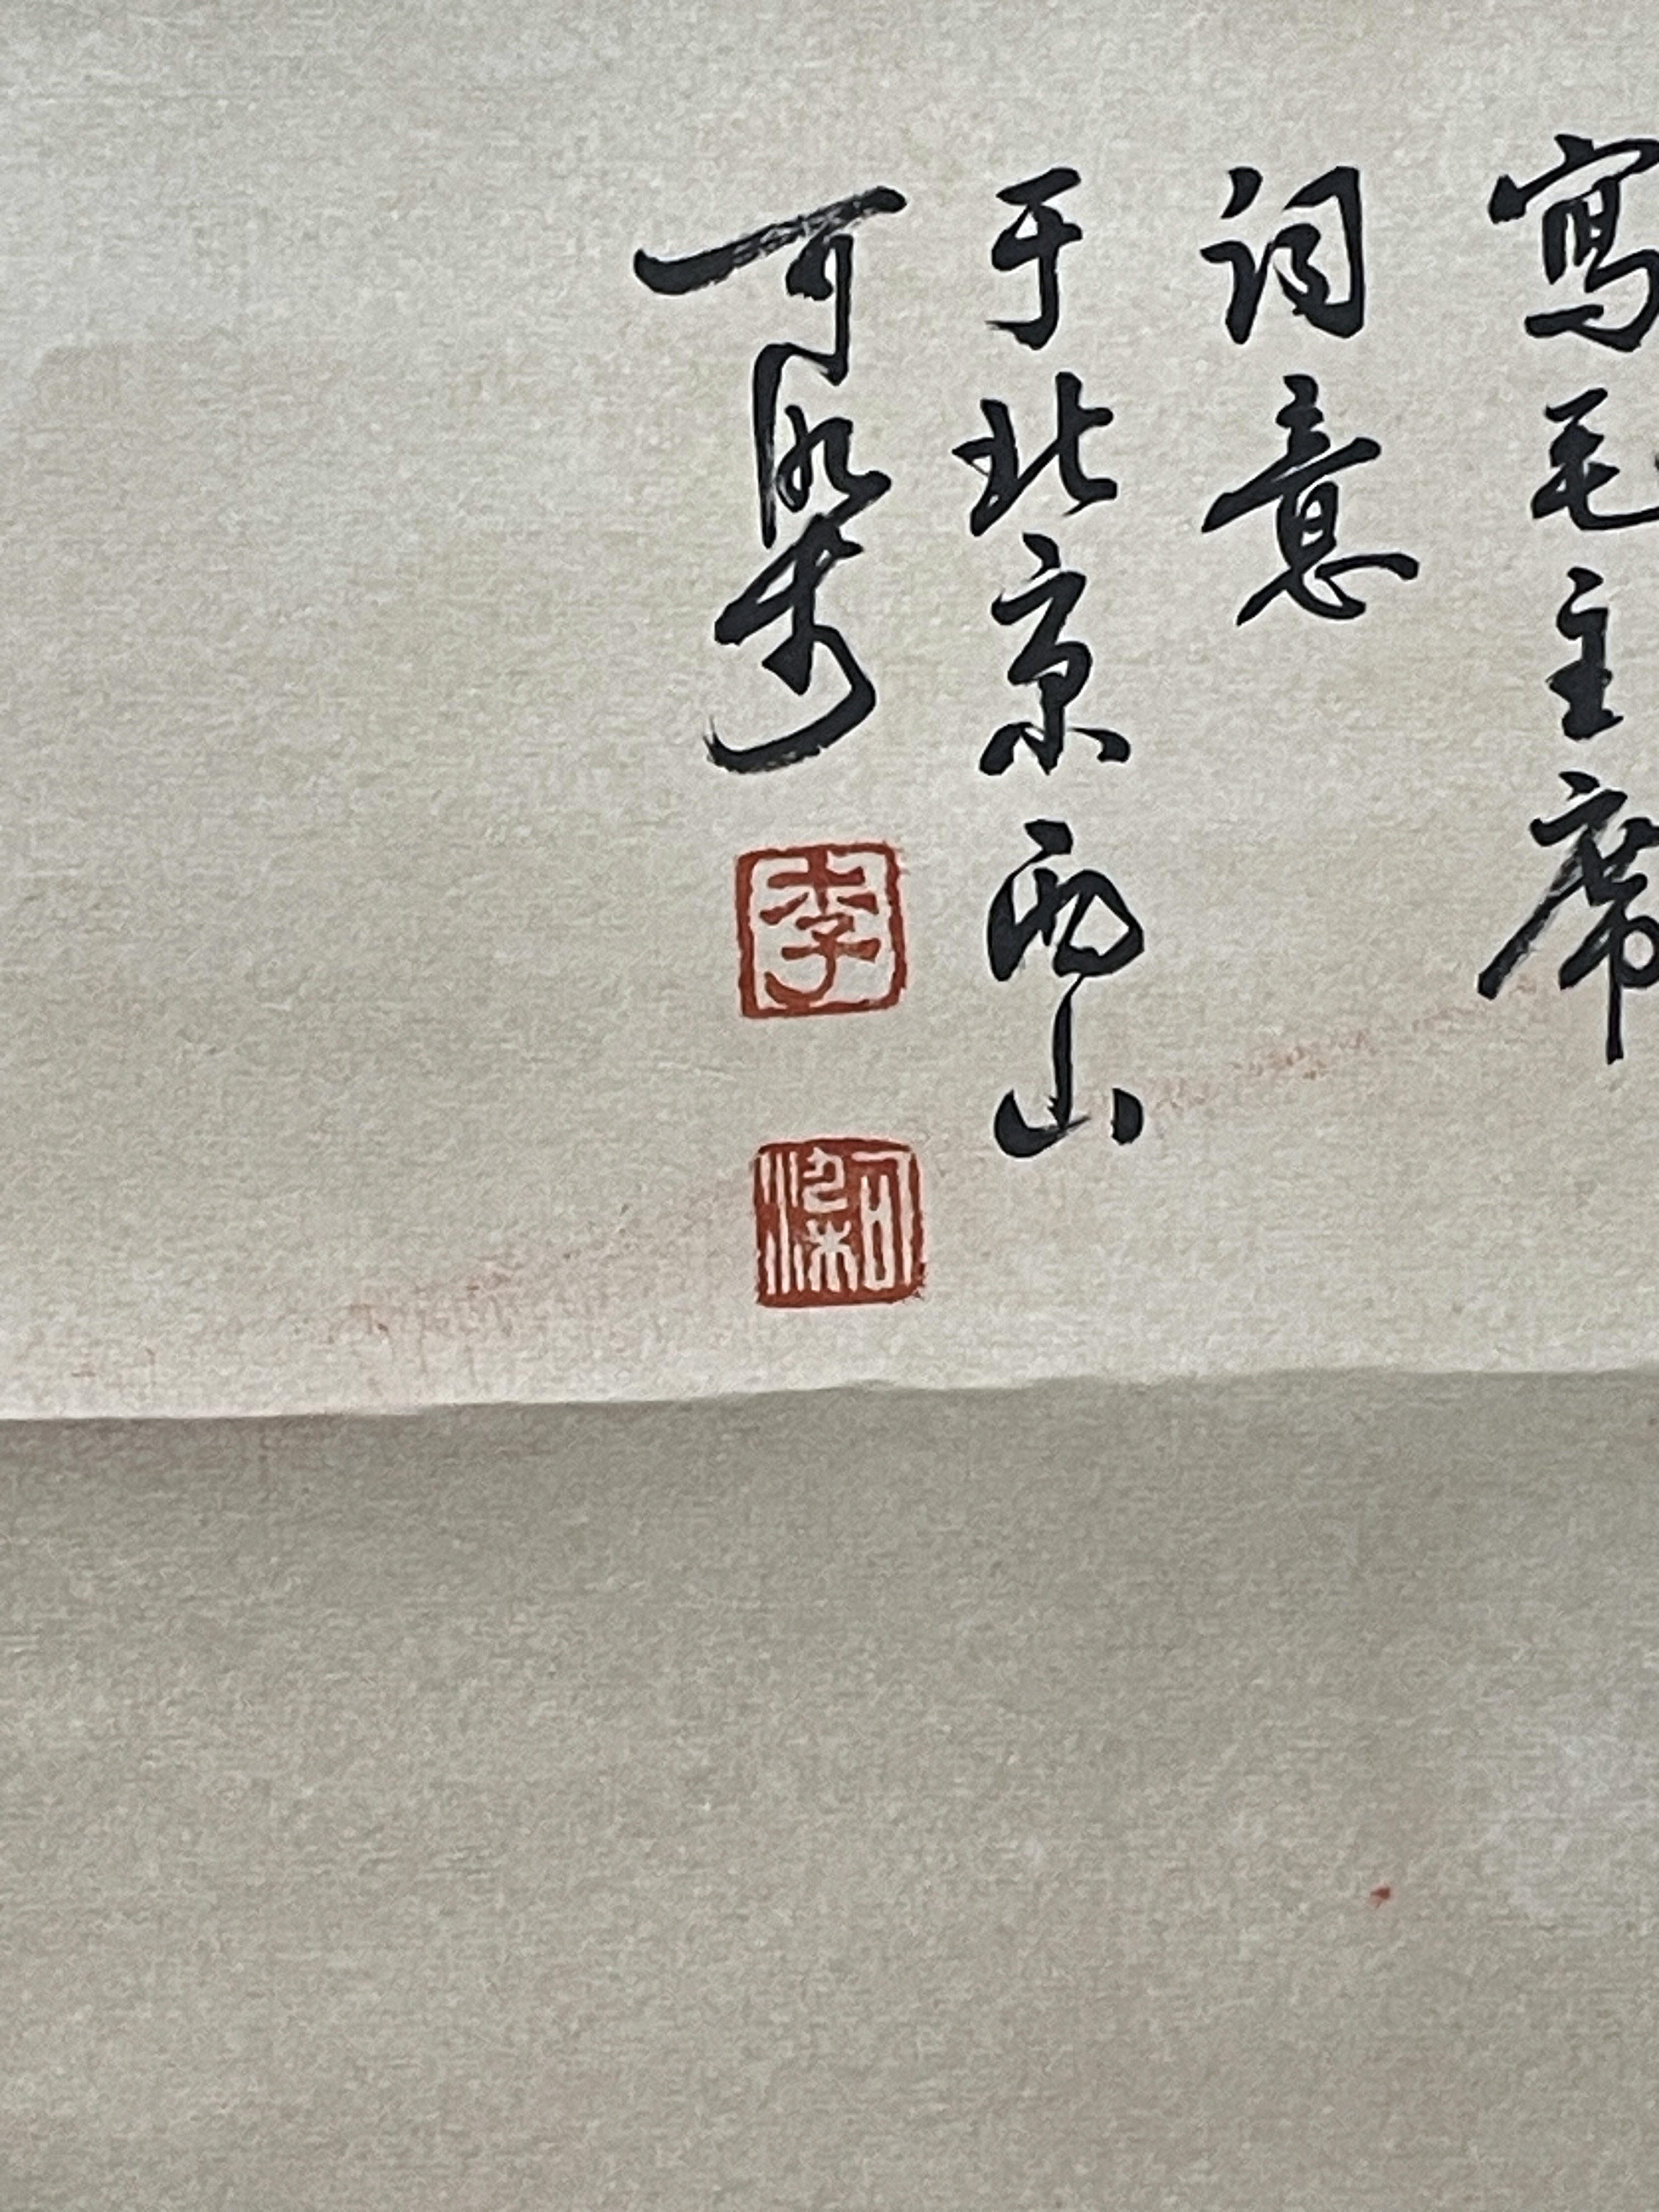 寫毛主席
词意
于北京西山
可染
李
可染